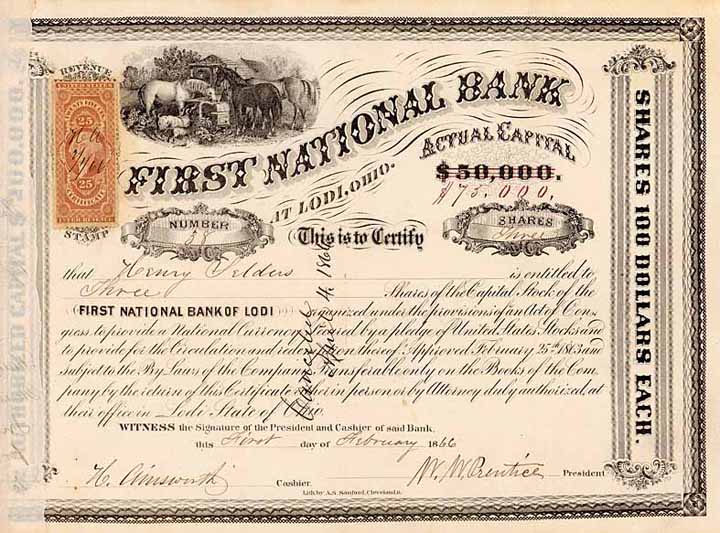 REVENUE
UNITED STATES
25
25
CERTIFICATE
INTER. REVENUE
STAMP
FIRST NATIONAL BANK
AT LODI, OHIO.
ACTUAL CAPITAL
$50,000.
$75.000.
NUMBER
38
This is to Certify
SHARES
Three
that Henry Selders is entitled to
Three Shares of the Capital Stock of the
FIRST NATIONAL BANK OF LODI organized under the provisions of an Act of Con-
gress to provide a National Currency secured by a pledge of United States Stocks and
to provide for the Circulation and redemption thereof Approved February 25th 1863 and
subject to the By Laws of the Company Transferable only on the Books of the Com-
pany by the return of this Certificate either in person or by Attorney duly authorized, at
their office in Lodi State of Ohio.
Cancelled
April 4, 186
WITNESS the Signature of the President and Cashier of said Bank,
this First day of February 1866
H. Ainsworth Cashier.
W. W. Prentice President
Lith. by A.S. Sanford, Cleveland, O.
SHARES 100 DOLLARS EACH.
AUTHORIZED CAPITAL $300,000.